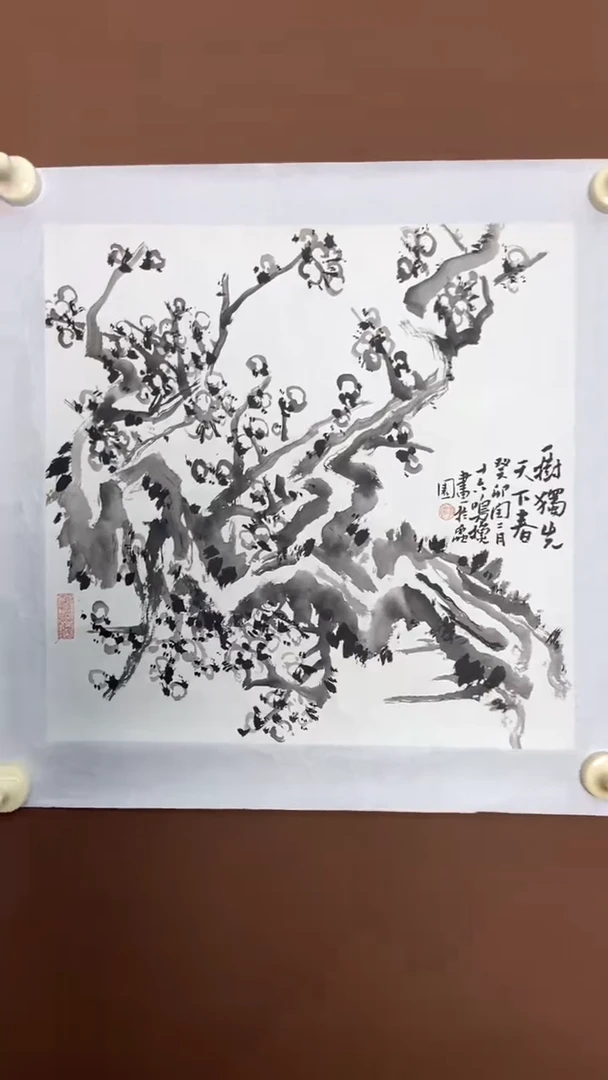 一樹獨先
天下春
癸卯閏二月
十六
畫於
園